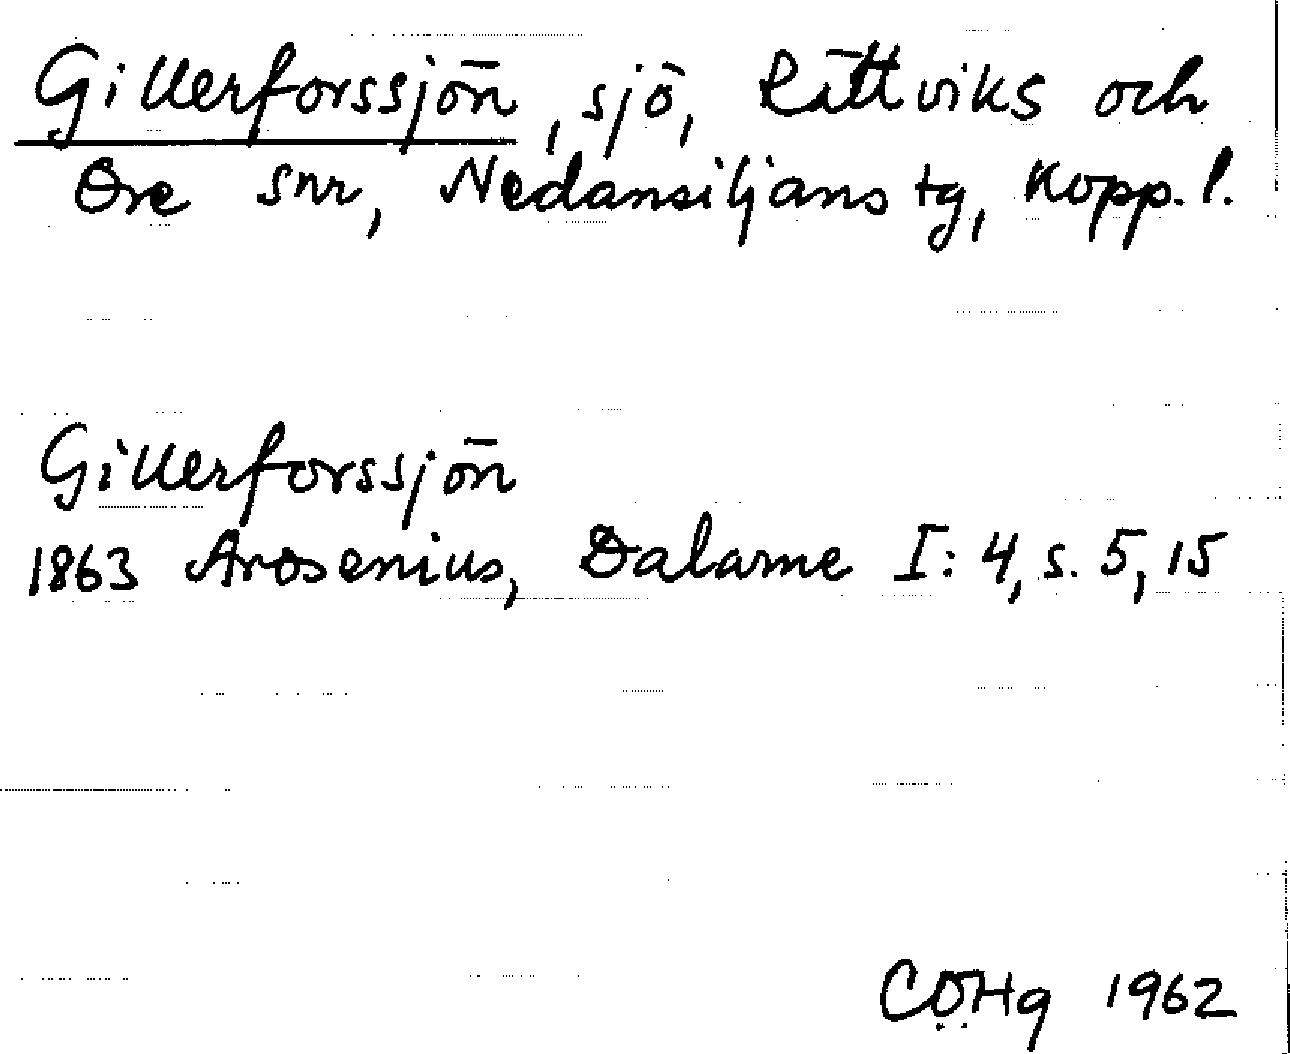 Gillerforssjön, sjö, Rättviks och
Ore snr, Nedansiljans tg, Kopp. l.
Gillerforssjön
1863 Arosenius, Dalarne I: 4, s. 5, 15
CÖHg 1962